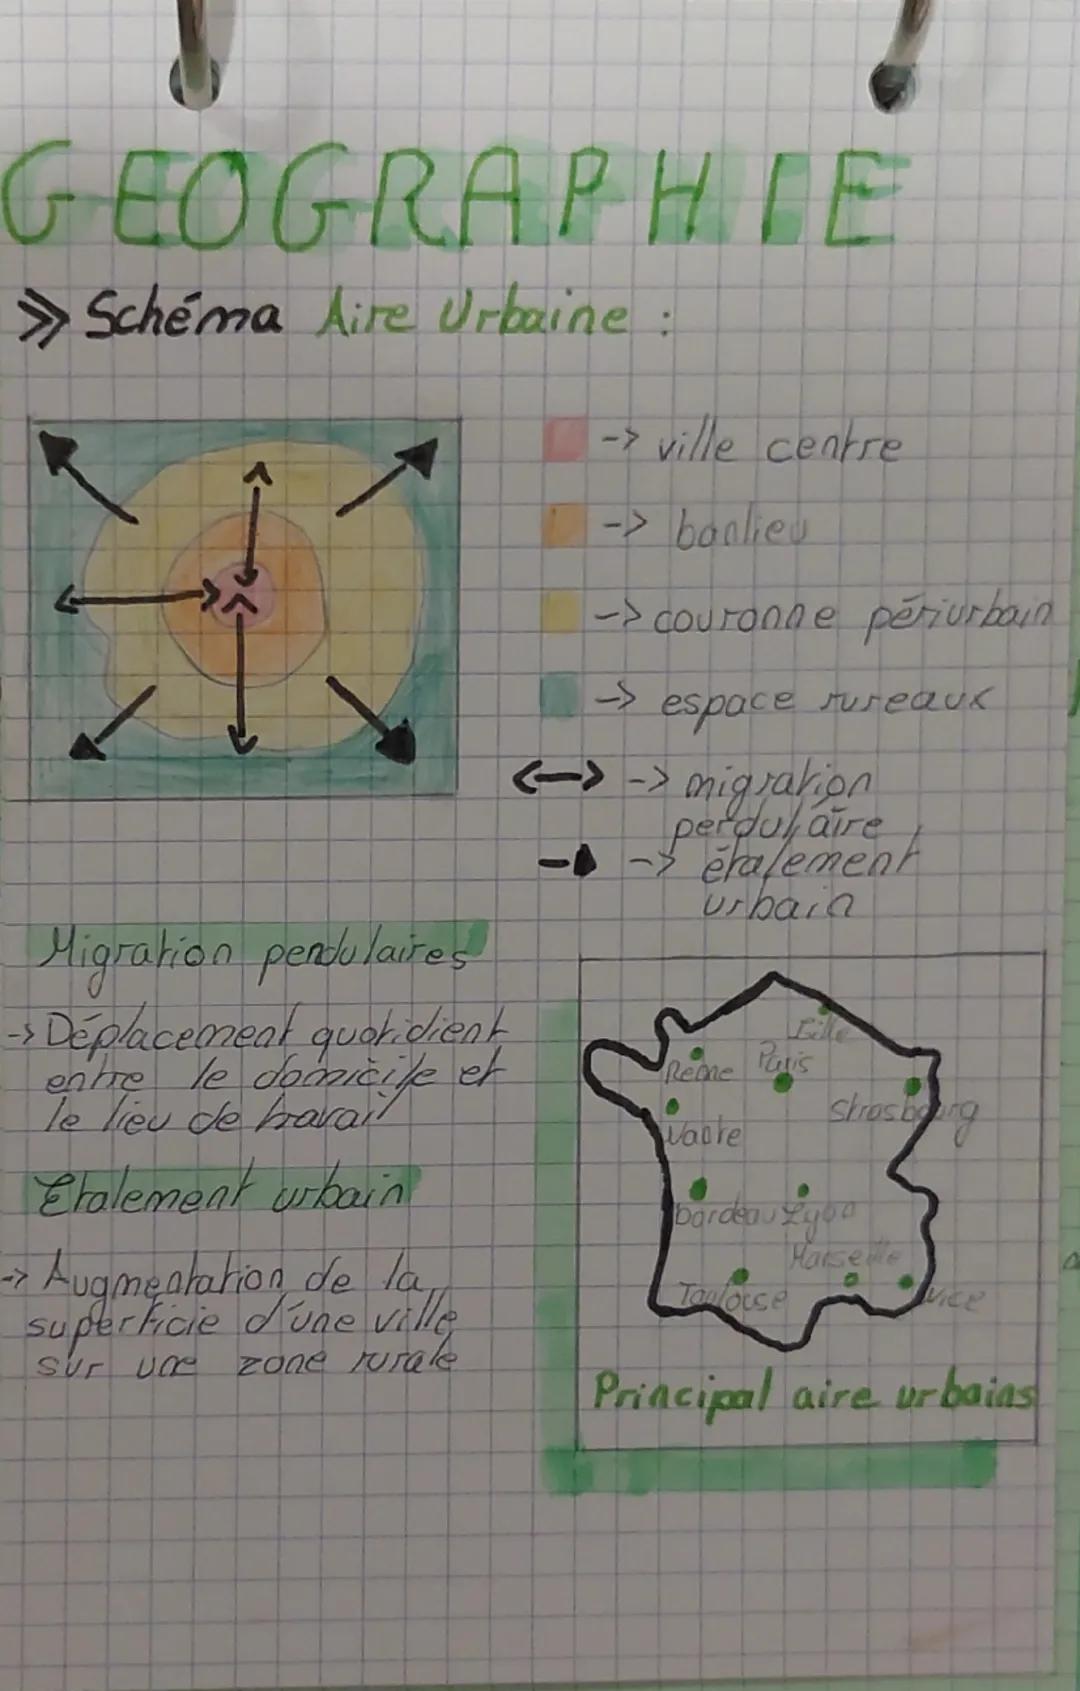 GEOGRAPHIE
>> Schéma Aire Urbaine :
-> ville centre
-> banlieu
-> couronne périurbain
-> espace rureaux
<-> -> migration
perdulaire
-> étalement
urbain
Migration pendulaires
-> Déplacement quotidient
entre le domicile et
le lieu de travail
Etalement urbain
-> Augmentation de la
superficie d'une ville
sur une zone rurale
Lille
Paris
Rene
Strasbourg
Nante
bordeau
Lyon
Marseille
Toulouse
Nice
Principal aire urbains